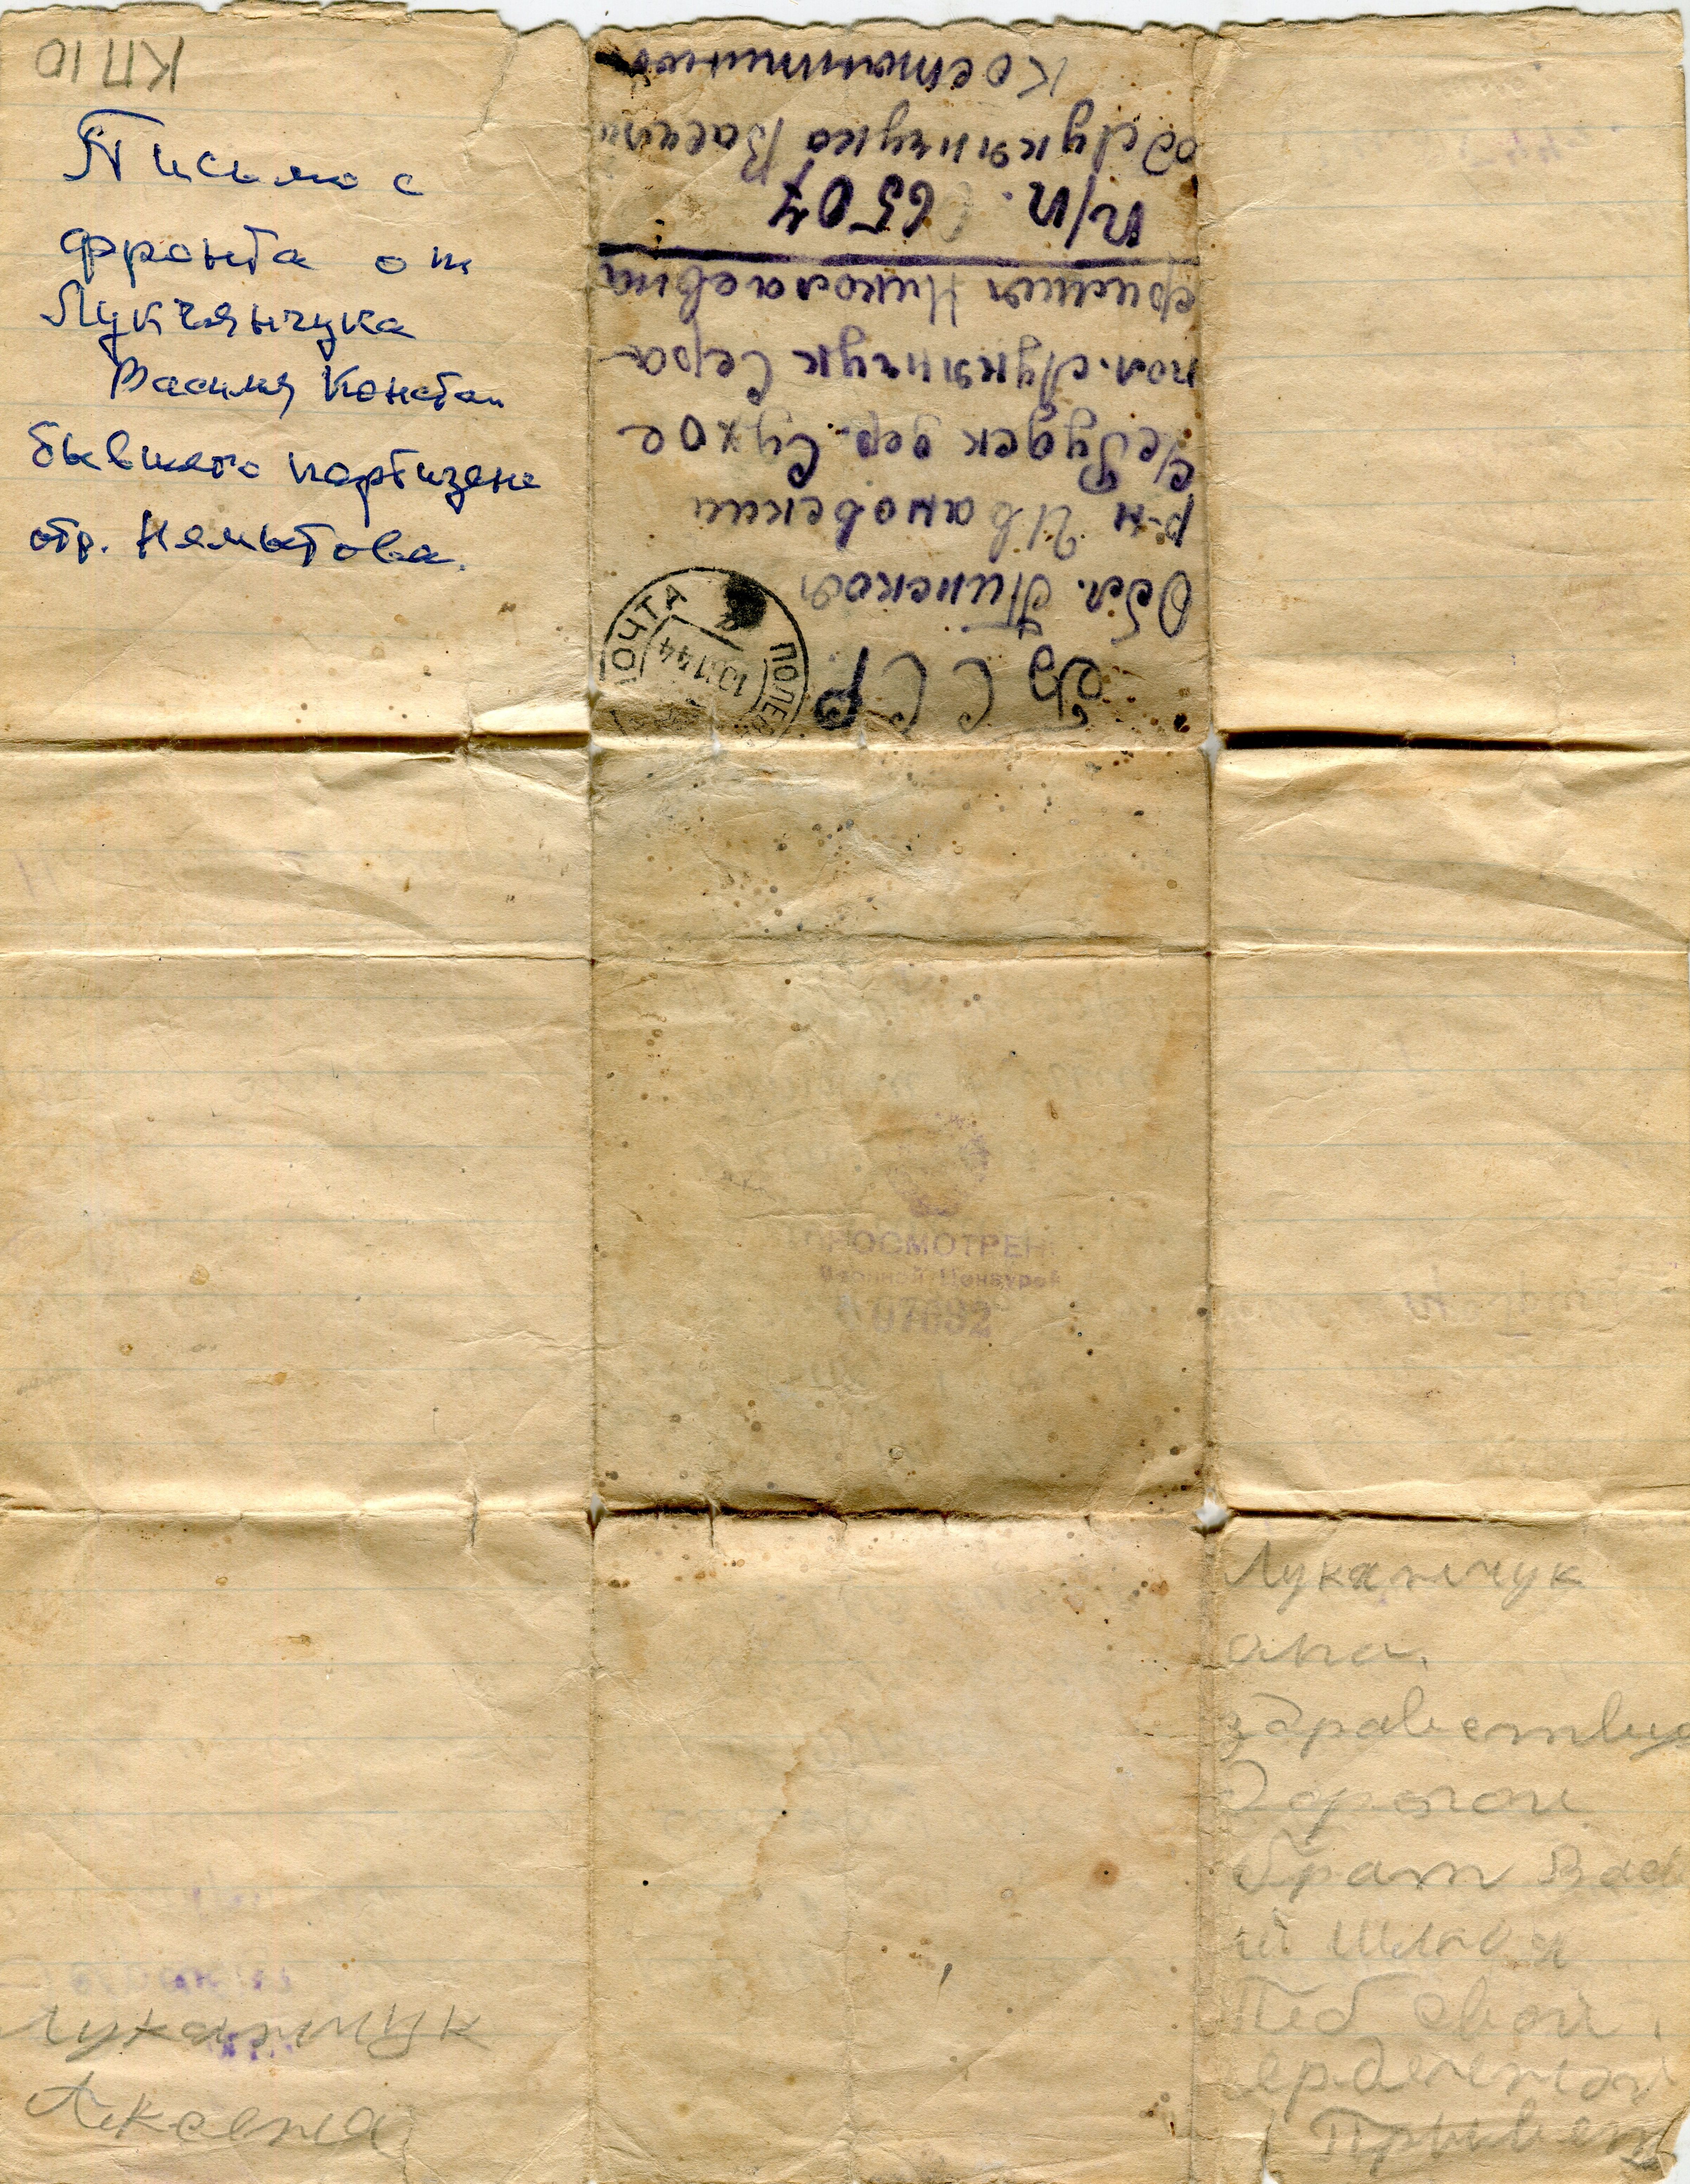 КП10
Письмо с
фронта от
Лукъянчука
Василия Констан
бывшего партизана
отр. Нямытова.
БССР
Обл. Пинская
р-н Ивановский
дер. Сухое
пол. Лукянчук Сера
Николаевна
п/п. 6507
од Лукянчука Васили
Костантинов
ПОЛЕВ
ПОЧТА
44
ПРОСМОТРЕН
Военной Цензурой
07632
Лукянчук
ана.
здравствуй
Дорогой
брат Вас
ий шлю я
Теб свой
сердечный
Прывет
Лукянчук
Аксена